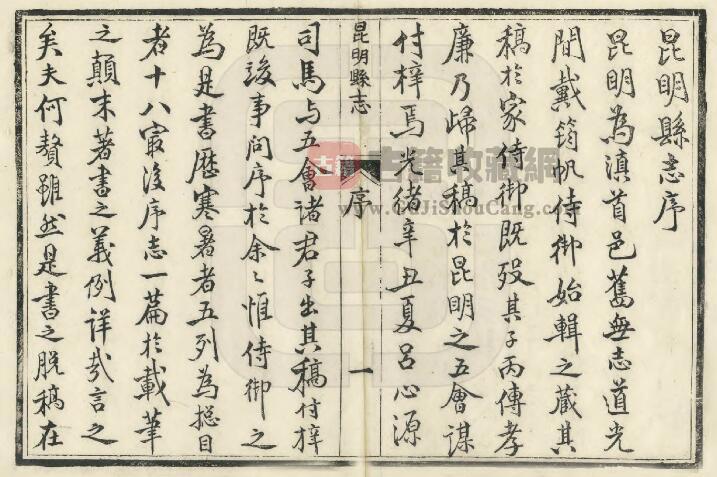 昆明縣志序
昆明為滇首邑舊無志道光
間戴筠帆侍御始輯之藏其
稿於家侍御既歿其子丙傳孝
廉乃歸其稿於昆明之五會謀
付梓焉光緒辛丑夏呂心源
昆明縣志
序
一
司馬与五會諸君子出其稿付梓
既竣事问序於余〻惟侍御之
為是書歷寒暑者五列為總目
者十八最後序志一篇於載筆
之顛末著書之義例詳哉言之
矣夫何贅雖然是書之脫稿在
古籍
古籍收藏網
www.GuJiShouCang.com